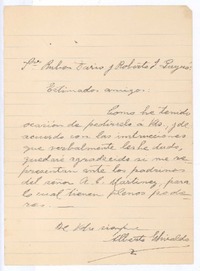 Sres Rubén Darío y Roberto J. Payró
Estimados amigos:
Como he tenido
ocasión de pedírselo á Vds, y de
acuerdo con las instrucciones
que verbalmente les he dado,
quedaré agradecido si me re-
presentan ante los padrinos
del señor A. C. Martinez, para
lo cual tienen plenos pode-
res.
De Vds siempre
Alberto Ghiraldo